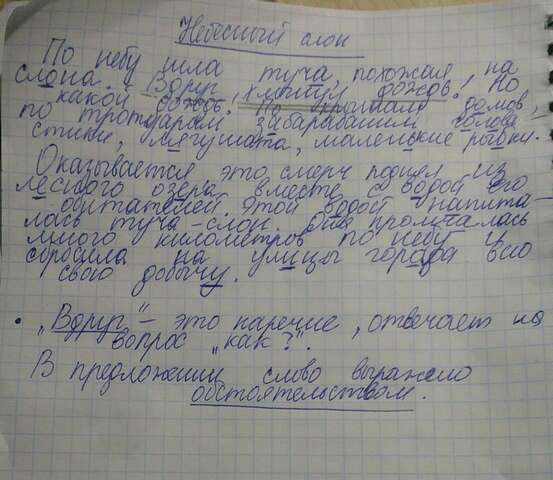 Небесный слон
По небу шла туча, похожая на
слона. Вдруг хлынул дождь! Но
какой дождь! По крышам домов,
по тротуарам забарабанили голова
стики, лягушата, маленькие рыбки.
Оказывается это смерч поднял из
лесного озера вместе с водой его
обитателей. Этой водой напита
лась туча-слон. Она промчалась
много километров по небу и
сбросила на улицы города всю
свою добычу.
• „Вдруг" – это наречие, отвечает на
вопрос „как?".
В предложении слово выражено
обстоятельством.